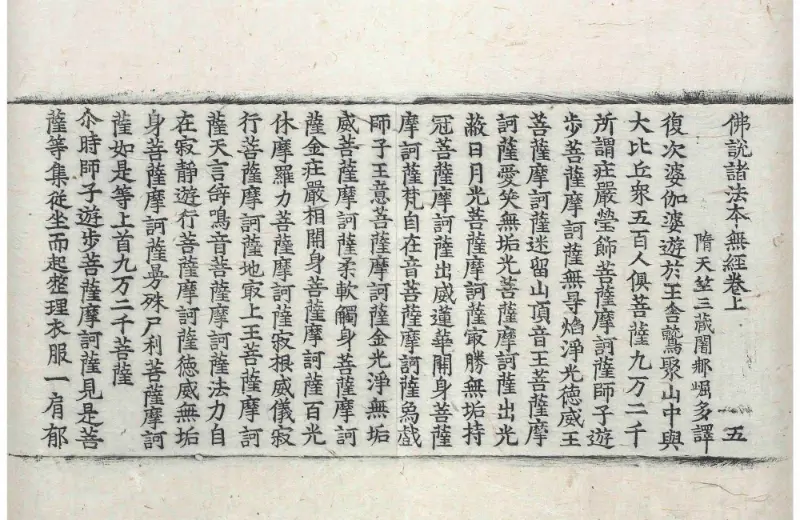 佛說諸法本無經卷上
五
隋天竺三藏闍那崛多譯
復次婆伽婆遊於王舍鷲聚山中與
大比丘衆五百人俱菩薩九万二千
所謂莊嚴瑩飾菩薩摩訶薩師子遊
步菩薩摩訶薩無㝵焰淨光德威王
菩薩摩訶薩迷留山頂音王菩薩摩
訶薩愛笑無垢光菩薩摩訶薩出光
蔽日月光菩薩摩訶薩㝡勝無垢持
冠菩薩摩訶薩出威蓮華開身菩薩
摩訶薩梵自在音菩薩摩訶薩為戲
師子王意菩薩摩訶薩金光淨無垢
威菩薩摩訶薩柔軟觸身菩薩摩訶
薩金莊嚴相開身菩薩摩訶薩百光
休摩羅力菩薩摩訶薩寂根威儀寂
行菩薩摩訶薩地㝡上王菩薩摩訶
薩天言辭鳴音菩薩摩訶薩法力自
在寂靜遊行菩薩摩訶薩德威無垢
身菩薩摩訶薩曼殊尸利菩薩摩訶
薩如是等上首九万二千菩薩
尒時師子遊步菩薩摩訶薩見是菩
薩等集從坐而起整理衣服一肩郁